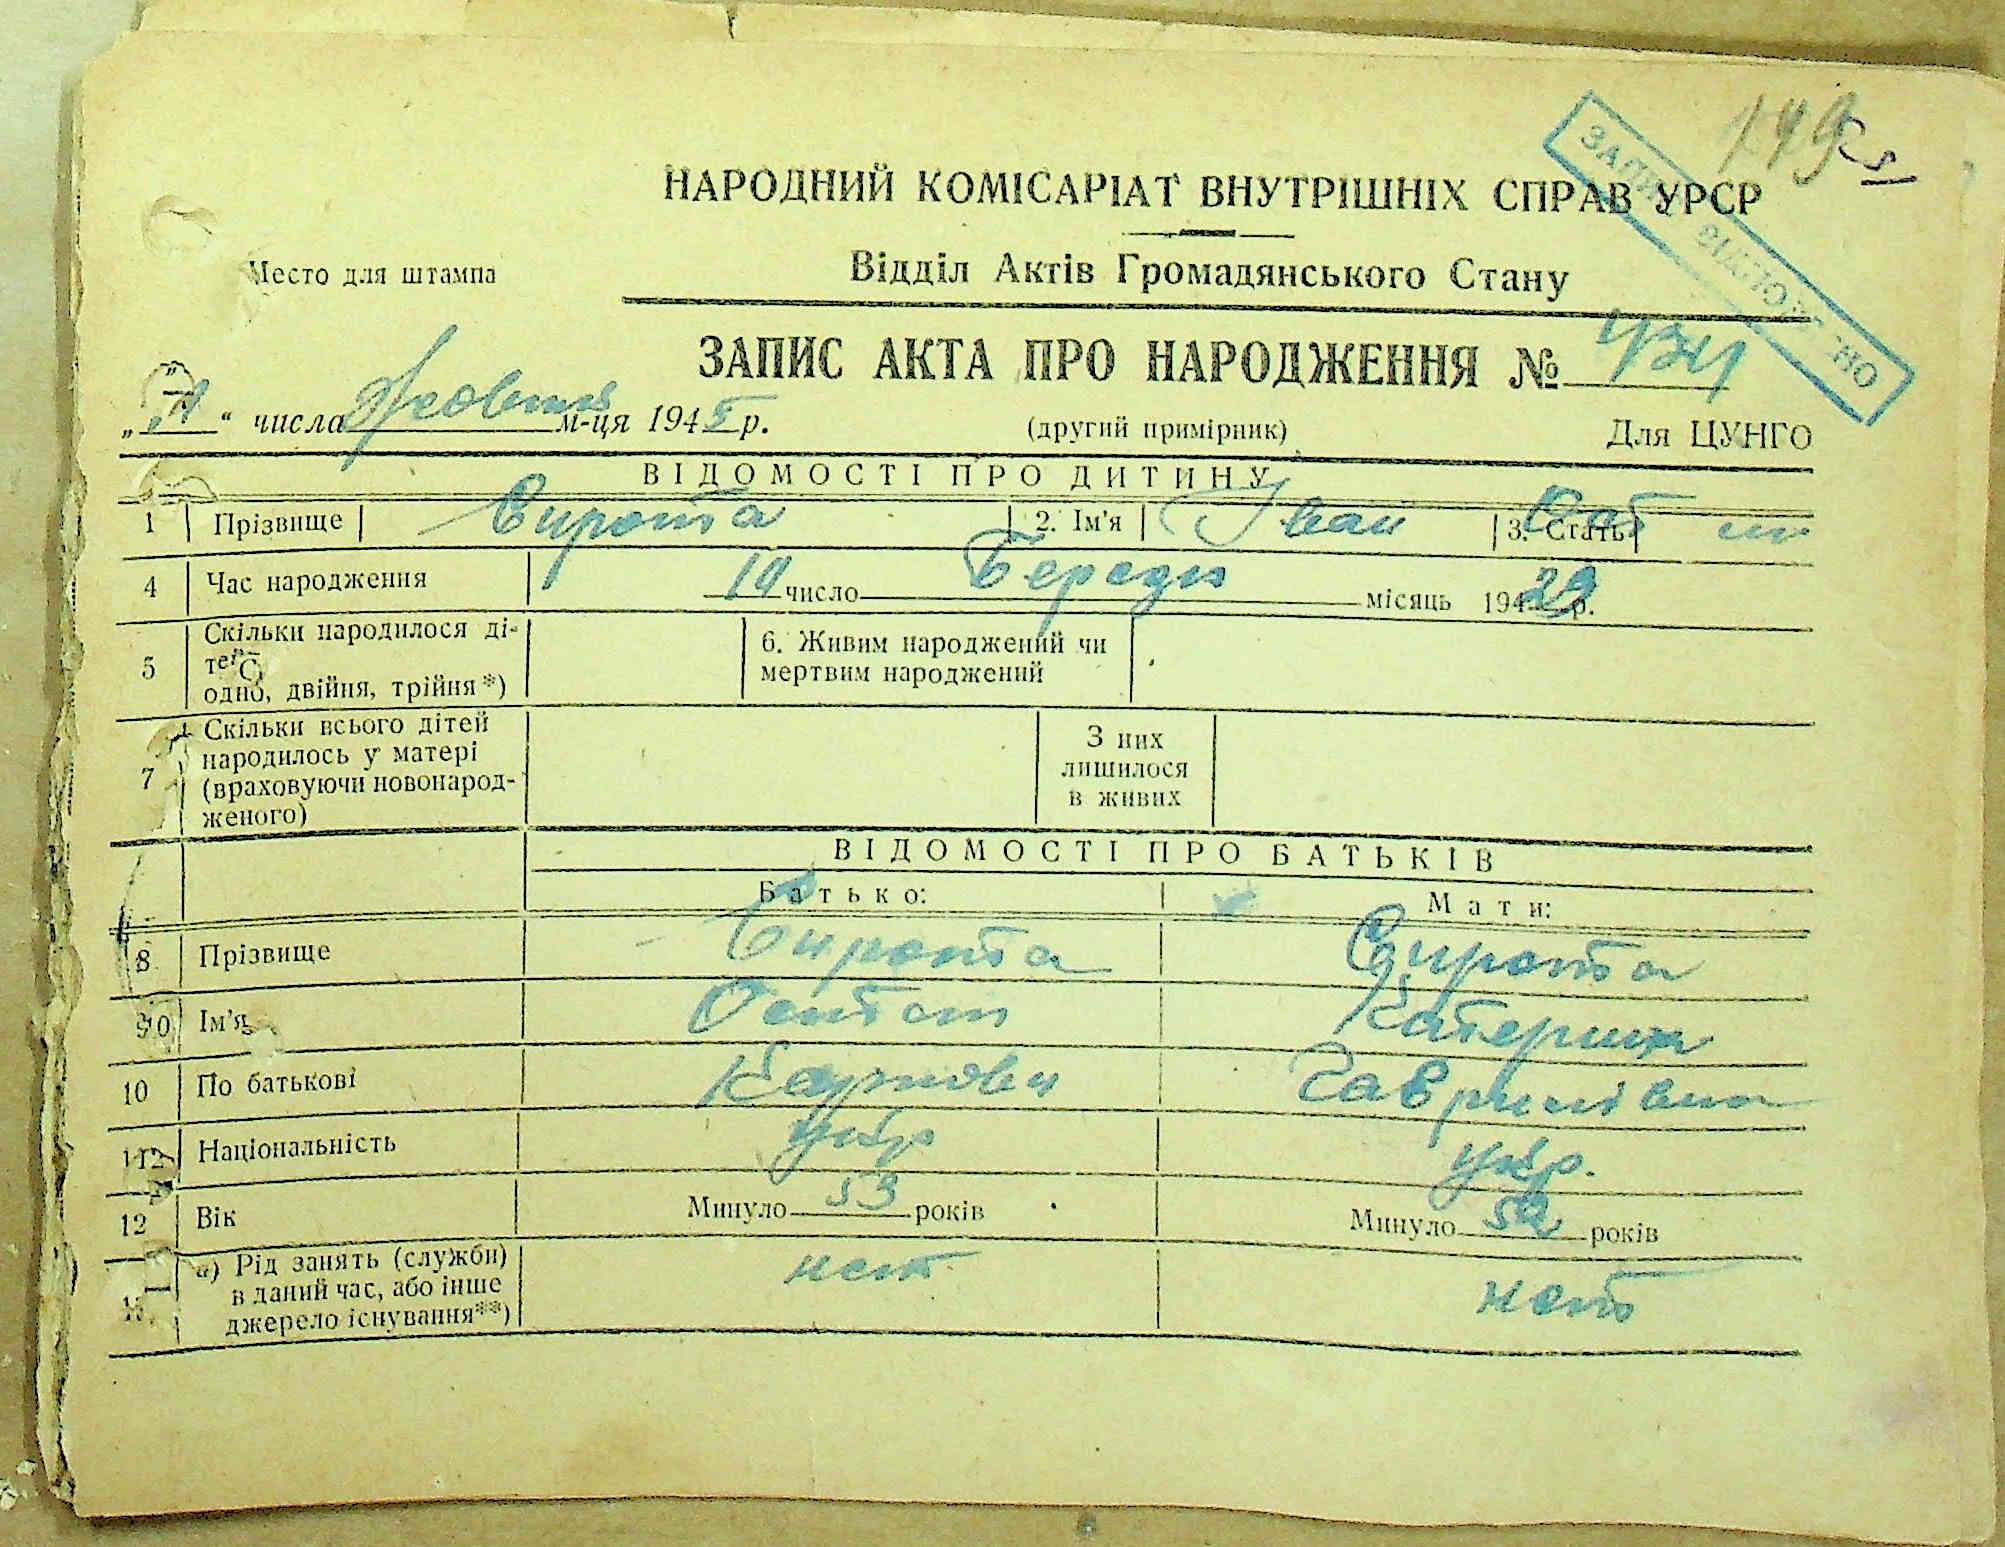 149
НАРОДНИЙ КОМІСАРІАТ ВНУТРІШНІХ СПРАВ УРСР
Место для штампа
Відділ Актів Громадянського Стану
ЗАПИС ВІДНОВЛЕНО
ЗАПИС АКТА ПРО НАРОДЖЕННЯ №
„ “ числа Жовтня м-ця 1945 р.
(другий примірник)
Для ЦУНГО
ВІДОМОСТІ ПРО ДИТИНУ
1 Прізвище Сирота 2. Ім’я Іван 3. Стать
4 Час народження 14 число Березня місяць 194 29 р.
5 Скільки народилося ді-
тей
одно, двійня, трійня*)
6. Живим народжений чи
мертвим народжений
7 Скільки всього дітей
народилось у матері
(враховуючи новонарод-
женого)
З них
лишилося
в живих
ВІДОМОСТІ ПРО БАТЬКІВ
Батько: Мати:
8 Прізвище Сирота Сирота
Ім’я Остап Катерина
10 По батькові Гаврилівна
Національність укр укр.
12 Вік Минуло 53 років Минуло 52 років
а) Рід занять (служби)
в даний час, або інше
джерело існування**)
нет нет